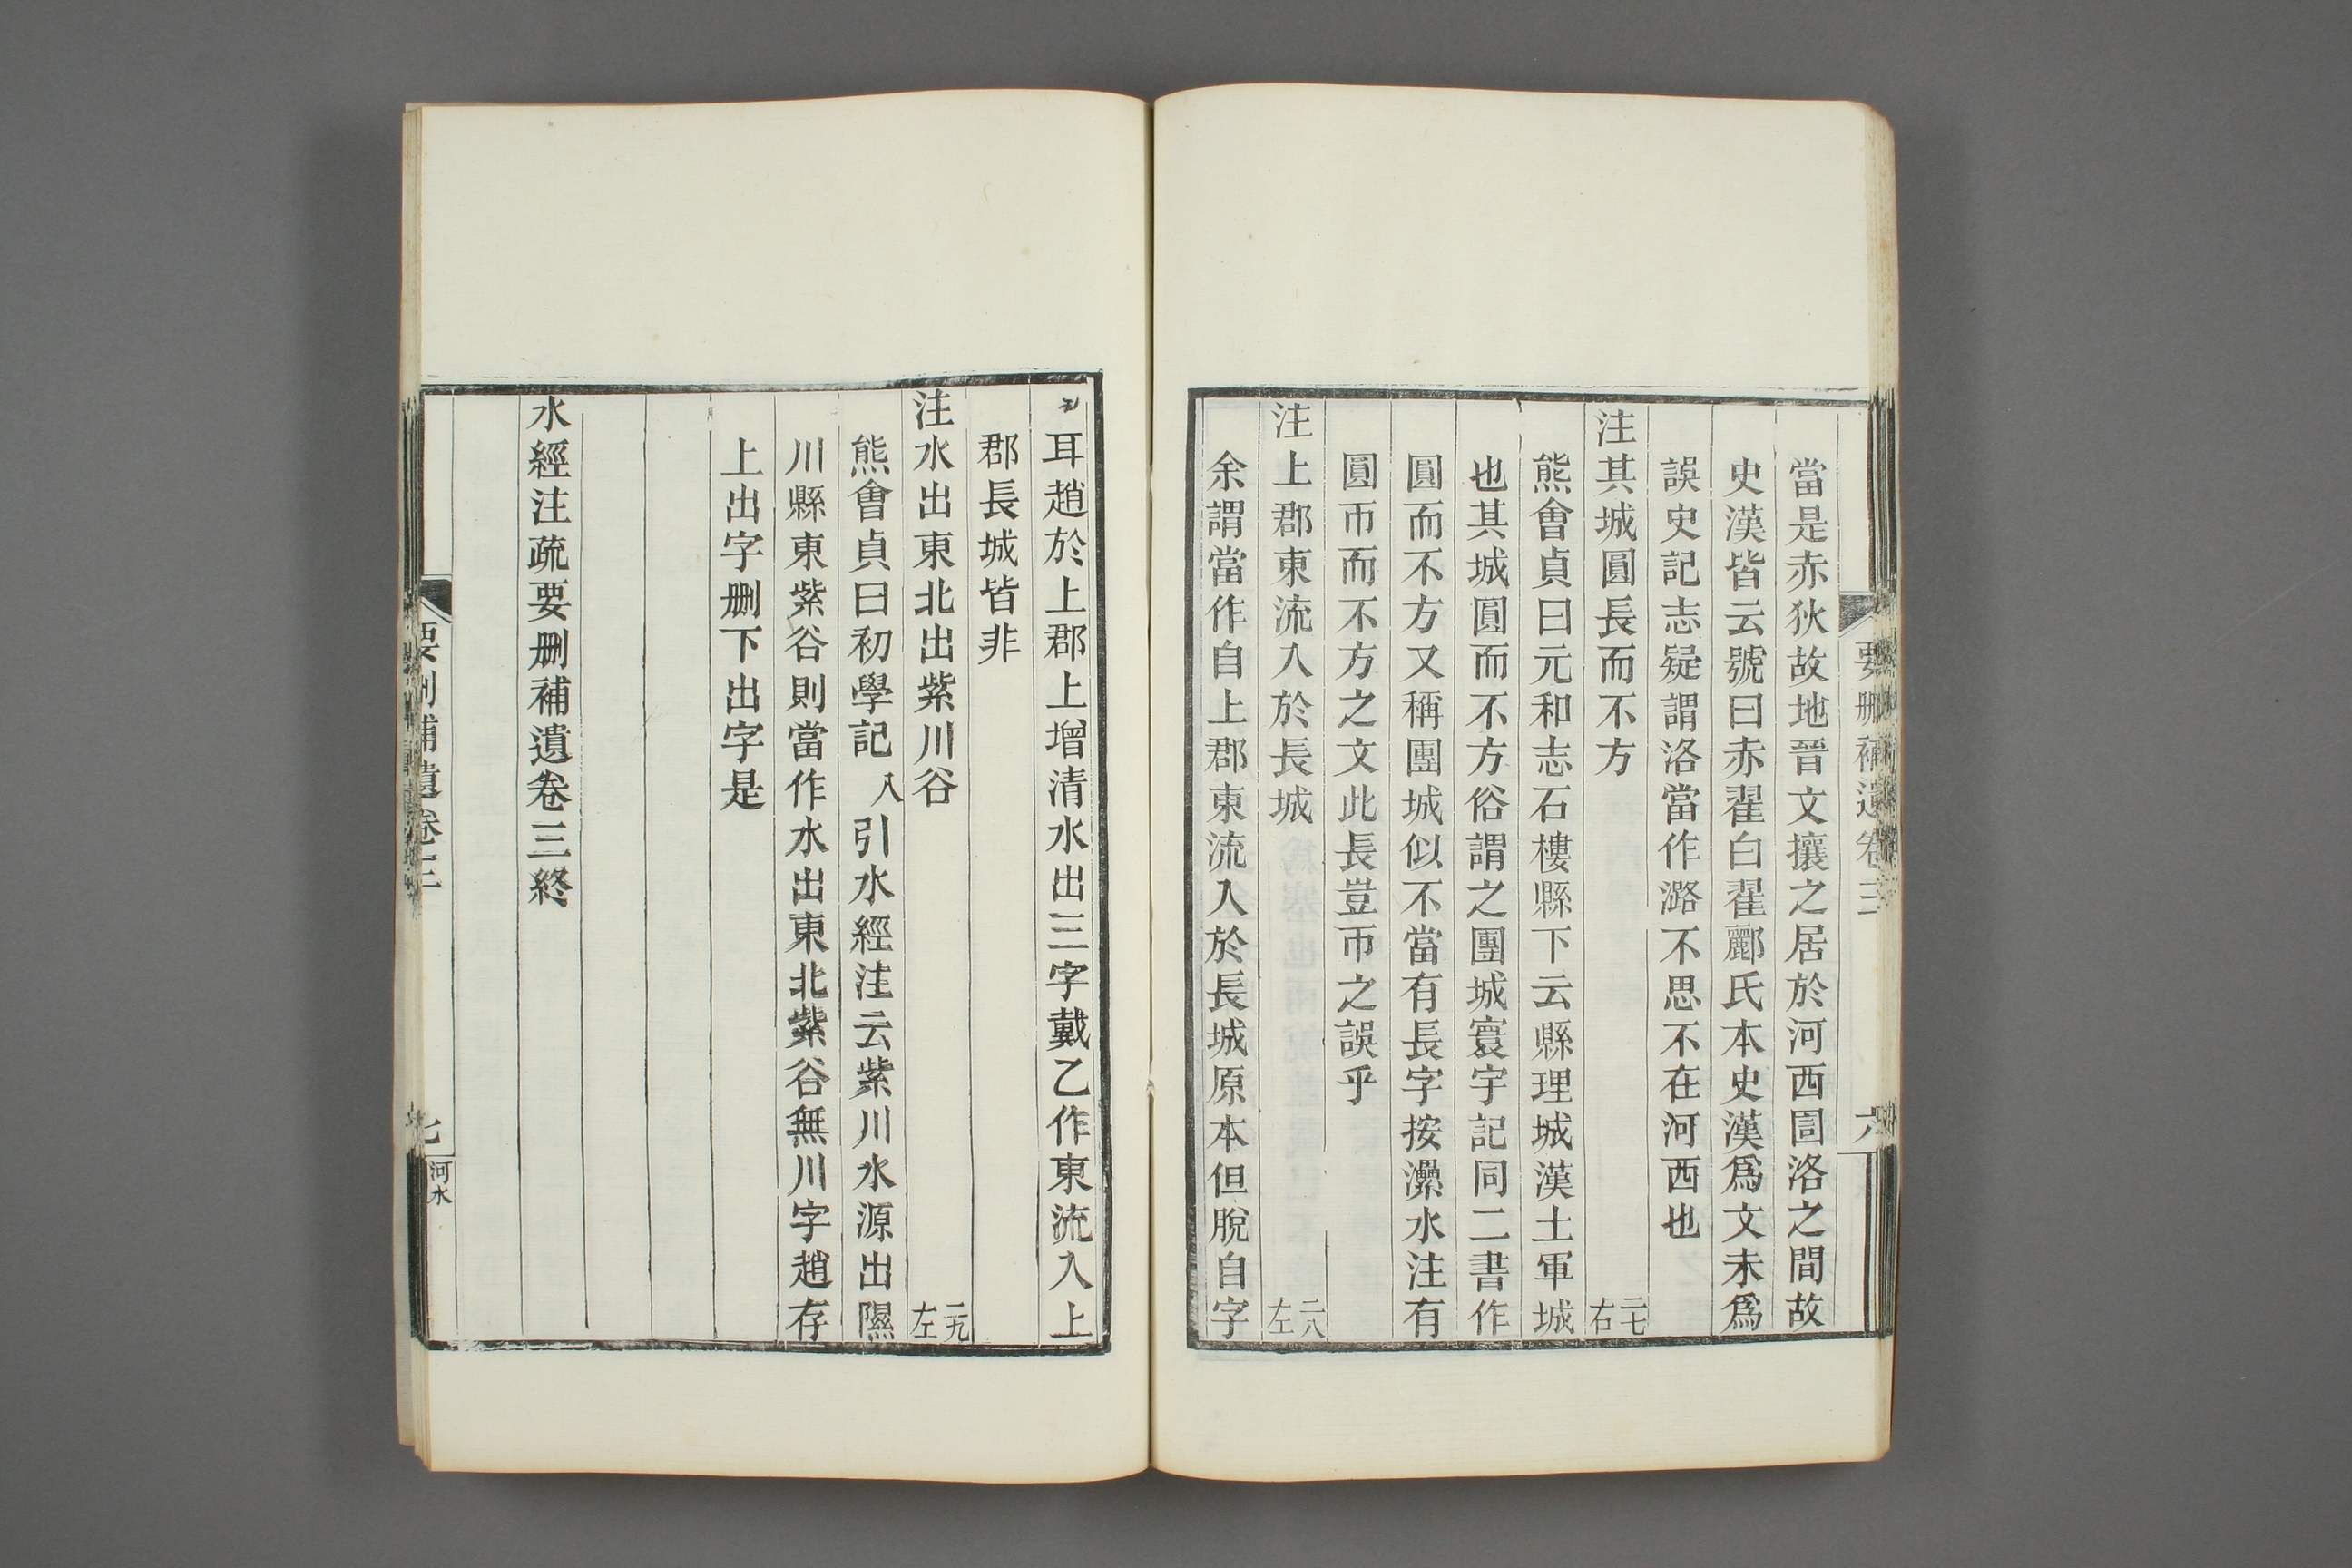 要刪補遺卷三
六
當是赤狄故地晉文攘之居於河西圁洛之間故
史漢皆云號曰赤翟白翟酈氏本史漢爲文未爲
誤史記志疑謂洛當作潞不思不在河西也
注其城圓長而不方 二七右
熊會貞曰元和志石樓縣下云縣理城漢土軍城
也其城圓而不方俗謂之團城寰宇記同二書作
圓而不方又稱團城似不當有長字按灅水注有
圓帀而不方之文此長豈帀之誤乎
注上郡東流入於長城 二八左
余謂當作自上郡東流入於長城原本但脫自字
耳趙於上郡上增清水出三字戴乙作東流入上
郡長城皆非
注水出東北出紫川谷 二九左
熊會貞曰初學記八引水經注云紫川水源出隰
川縣東紫谷則當作水出東北紫谷無川字趙存
上出字刪下出字是
水經注疏要刪補遺卷三終
要刪補遺卷三
七
河水